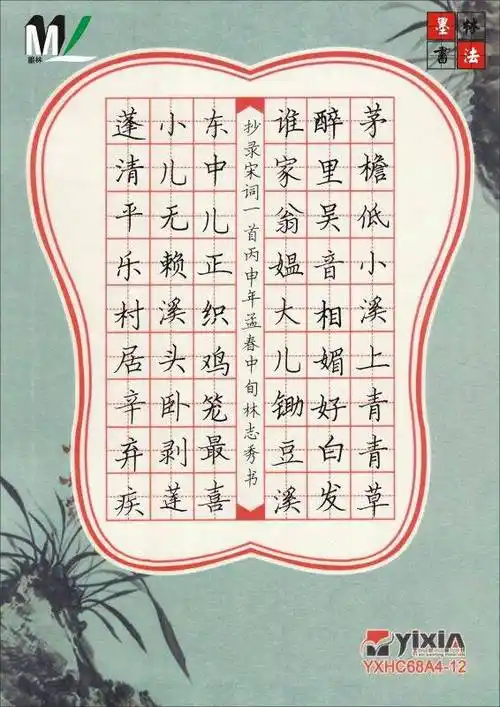 墨林
墨林
書法
茅檐低小溪上青青草
醉里吴音相媚好白发
谁家翁媪大儿锄豆溪
抄录宋词一首丙申年孟春中旬林志秀书
东中儿正织鸡笼最喜
小儿无赖溪头卧剥莲
蓬清平乐村居辛弃疾
YIXIA
YXHC68A4-12